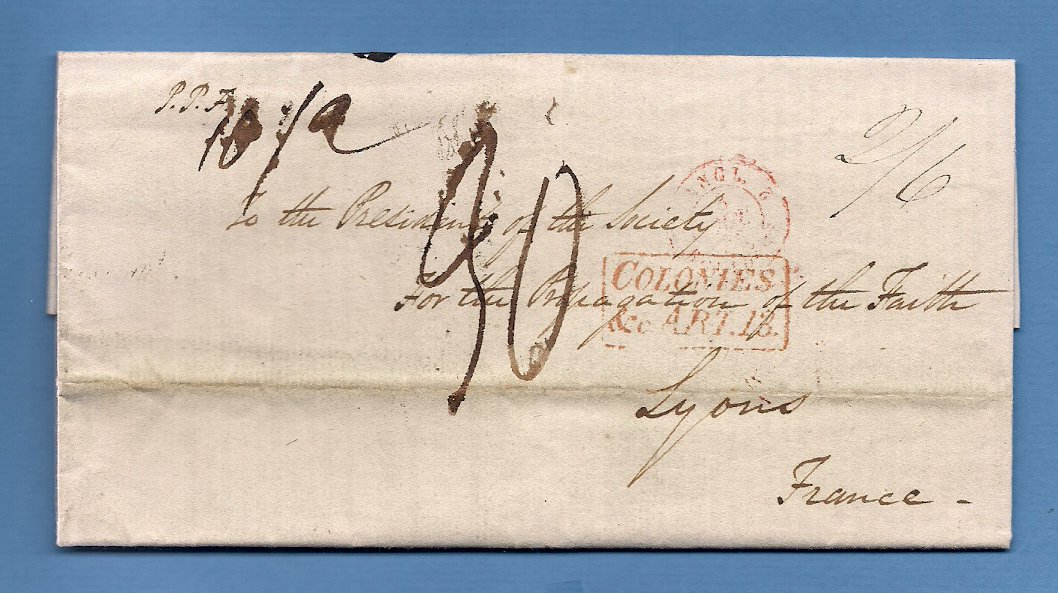 P. P. F.
2/6
30
ANGL. 2
To the President of the Society
COLONIES
For the Propagation of the Faith
&c ART. 13.
Lyons
France -